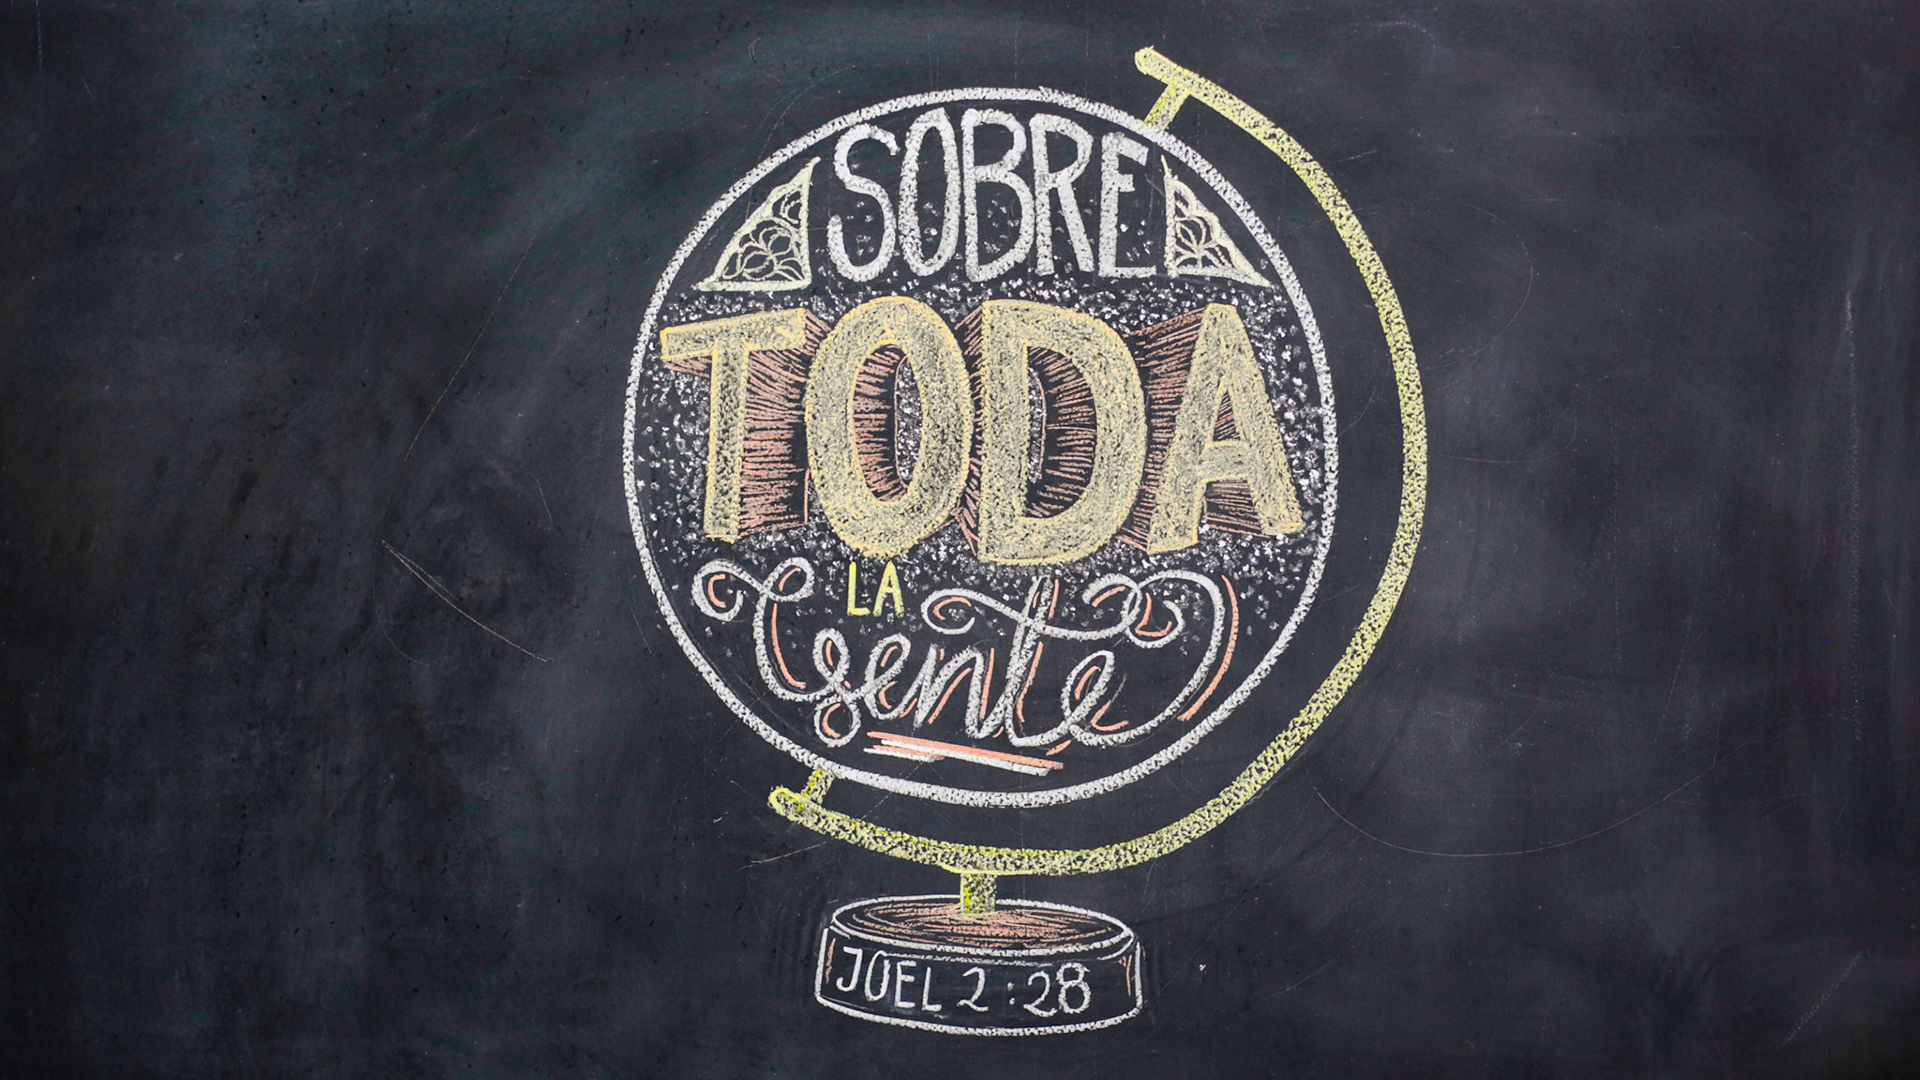 SOBRE
TODA
LA
Gente
JOEL 2:28